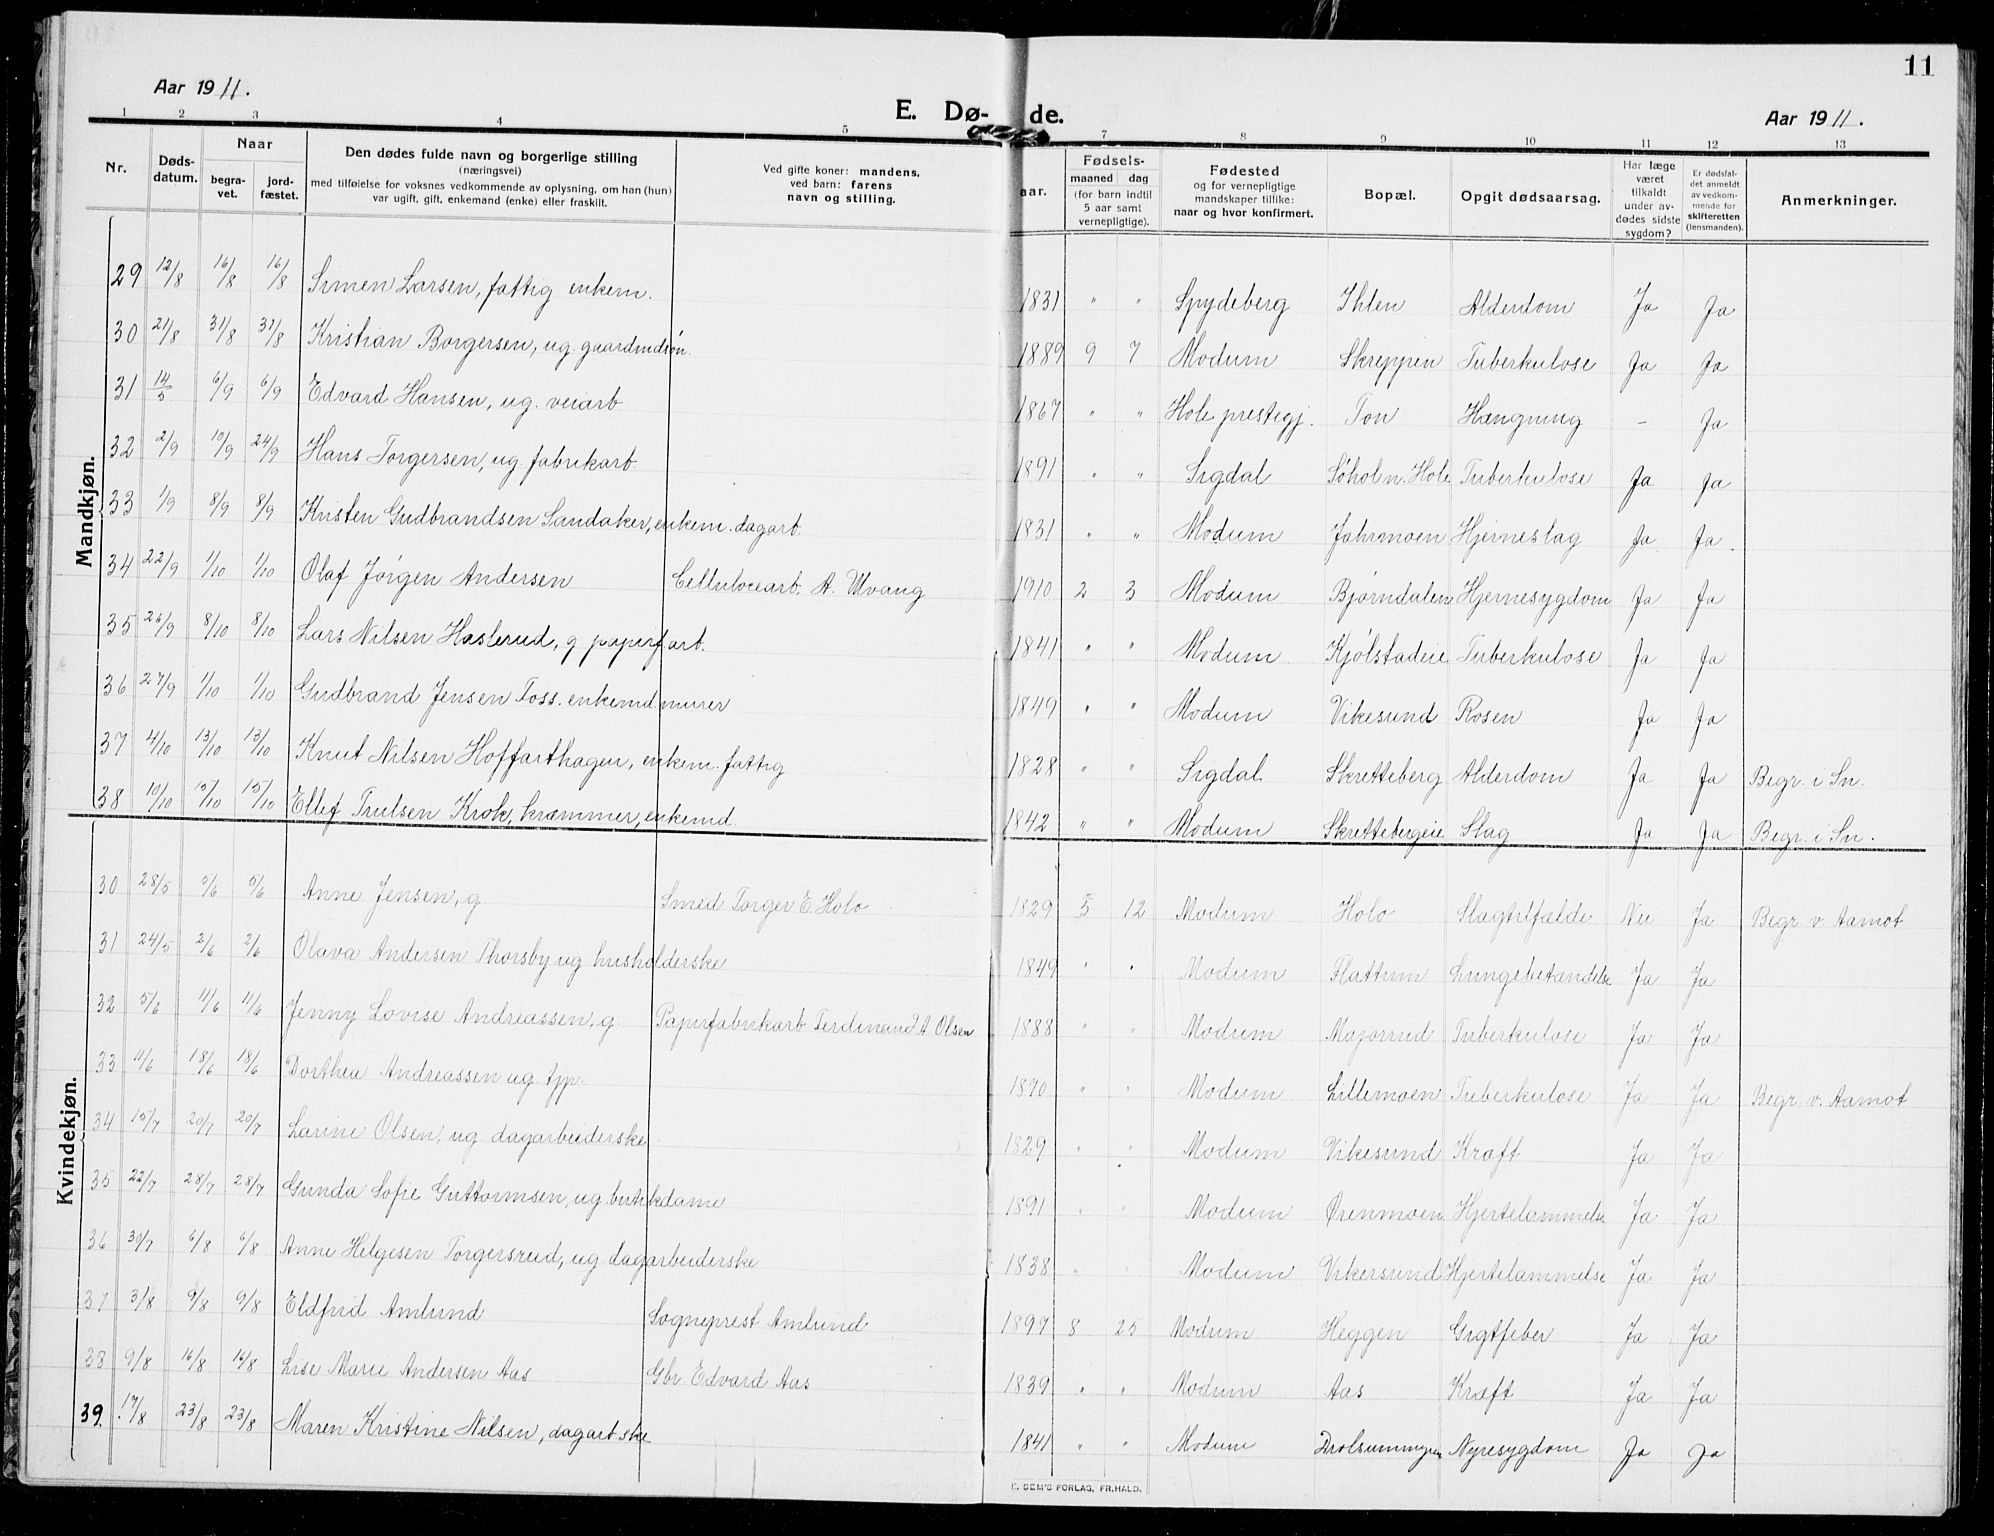 11
Aar 1911.
E. Dø- de.
Aar 1911.
1 2 3 4 5 7 8 9 10 11 12 13
Nr. | Døds-datum. | Naar begra-vet. | jord-fæstet. | Den dødes fulde navn og borgerlige stilling (næringsvei) med tilføielse for voksnes vedkommende av oplysning, om han (hun) var ugift, gift, enkemand (enke) eller fraskilt. | Ved gifte koner: mandens, ved barn: farens navn og stilling. | aar. | Fødsels- maaned dag (for barn indtil 5 aar samt vernepligtige). | Fødested og for vernepligtige mandskaper tillike: naar og hvor konfirmert. | Bopæl. | Opgit dødsaarsag. | Har læge været tilkaldt under av-dødes sidste sygdom? | Er dødsfal-det anmeldt av vedkom-mende for skifteretten (lensmanden). | Anmerkninger.
Mandkjøn.
29 12/8 16/8 16/8 Simen Larsen, fattig enkem. 1831 " " Spydeberg Ihlen Alderdom Ja Ja
30 21/8 31/8 31/8 Kristian Borgersen, ug. gaardmdsøn. 1889 9 7 Modum Skreppen Tuberkulose Ja Ja
31 14/5 6/9 6/9 Edvard Hansen, ug. veiarb 1867 " " Hole prestegj. Ton Hængning - Ja
32 2/9 10/9 24/9 Hans Torgersen, ug. fabrikarb. 1891 " " Sigdal Søholn. Hole Tuberkulose Ja Ja
33 1/9 8/9 8/9 Kristen Gudbrandsen Sandaker, enkem. dagarb. 1831 " " Modum Jahrmoen Hjerneslag Ja Ja
34 22/9 1/10 1/10 Olaf Jørgen Andersen Cellulocearb. A. Ulvang 1910 2 3 Modum Bjørndalen Hjernesygdom Ja Ja
35 26/9 8/10 8/10 Lars Nilsen Haslerud, g papirfarb. 1841 " " Modum Kjølstadeie Tuberkulose Ja Ja
36 27/9 1/10 1/10 Gudbrand Jensen Foss. enkemd. murer 1849 " " Modum Vikesund Rosen Ja Ja
37 4/10 13/10 13/10 Knut Nilsen Hoffarthagen, enkem. fattig 1828 " " Sigdal Skretteberg Alderdom Ja Ja Begr. i Sn.
38 10/10 15/10 15/10 Ellef Trulsen Krok, kræmmer, enkemd. 1842 " " Modum Skrettebergeie Slag Ja Ja Begr. i Sn.
Kvindekjøn.
30 28/5 5/6 5/6 Anne Jensen, g Smed Torger E. Holo 1829 5 12 Modum Holo Slagtilfælde Nei Ja Begr v. Aamot
31 24/5 2/6 2/6 Olava Andersen Thorsby ug husholderske 1849 " " Modum Flattum Lungebetændelse Ja Ja
32 5/6 11/6 11/6 Jenny Lovise Andreassen, g. Papirfabrikarb Ferdinand A Olsen 1888 " " Modum Majorrud Tuberkulose Ja Ja
33 11/6 18/6 18/6 Dorthea Andreassen ug. tjp. 1870 " " Modum Lillemoen Tuberkulose Ja Ja Begr v. Aamot
34 15/7 20/7 20/7 Larine Olsen, ug dagarbeiderske 1829 " " Modum Vikesund Kræft Ja Ja
35 22/7 28/7 28/7 Gunda Sofie Guttormsen, ug. butikdame 1891 " " Modum Ørenmoen Hjertelammelse Ja Ja
36 30/7 6/8 6/8 Anne Helgesen Torgersrud, ug dagarbeiderske 1838 " " Modum Vikersund Hjertelammelse Ja Ja
37 3/8 9/8 9/8 Eldfrid Amlund Sogneprest Amlund 1897 8 25 Modum Heggen Gigtfeber Ja Ja
38 9/8 16/8 16/8 Lise Marie Andersen Aas Gbr Edvard Aas 1839 " " Modum Aas Kræft Ja Ja
39. 17/8 23/8 23/8 Maren Kristine Nilsen, dagarb.ske 1841 " " Modum Nyresygdom Ja Ja
E. SEM'S FORLAG, FR.HALD.